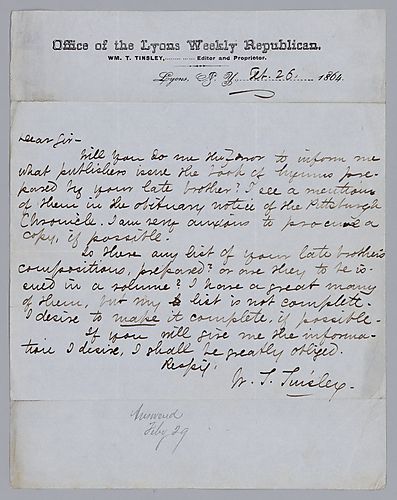 Office of the Lyons Weekly Republican.
WM. T. TINSLEY, Editor and Proprietor.
Lyons, N. Y. Feb. 26, 1864
Dear Sir-
Will you do me the favor to inform me
what publishers issue the book of hymns pre-
pared by your late brother? I see a mention
of them in the obituary notice of the Pittsburgh
Chronicle. I am very anxious to procure a
copy, if possible.
Is there any list of your late brother's
compositions, prepared? or are they to be is-
sued in a volume? I have a great many
of them, but my list is not complete.
I desire to make it complete, if possible.
If you will give me the informa-
tion I desire, I shall be greatly obliged.
Respy.
W. T. Tinsley.
Answered
Feby 29